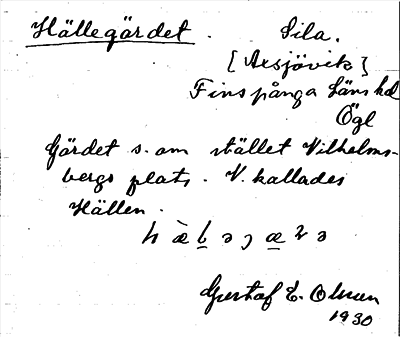 Hällegärdet. Sila.
[Axsjövik]
Finspånga läns hd
Ögl
Gärdet s. om stället Vilhelms-
bergs plats. V. kallades
Hällen.
Gustaf E. Olsson
1930